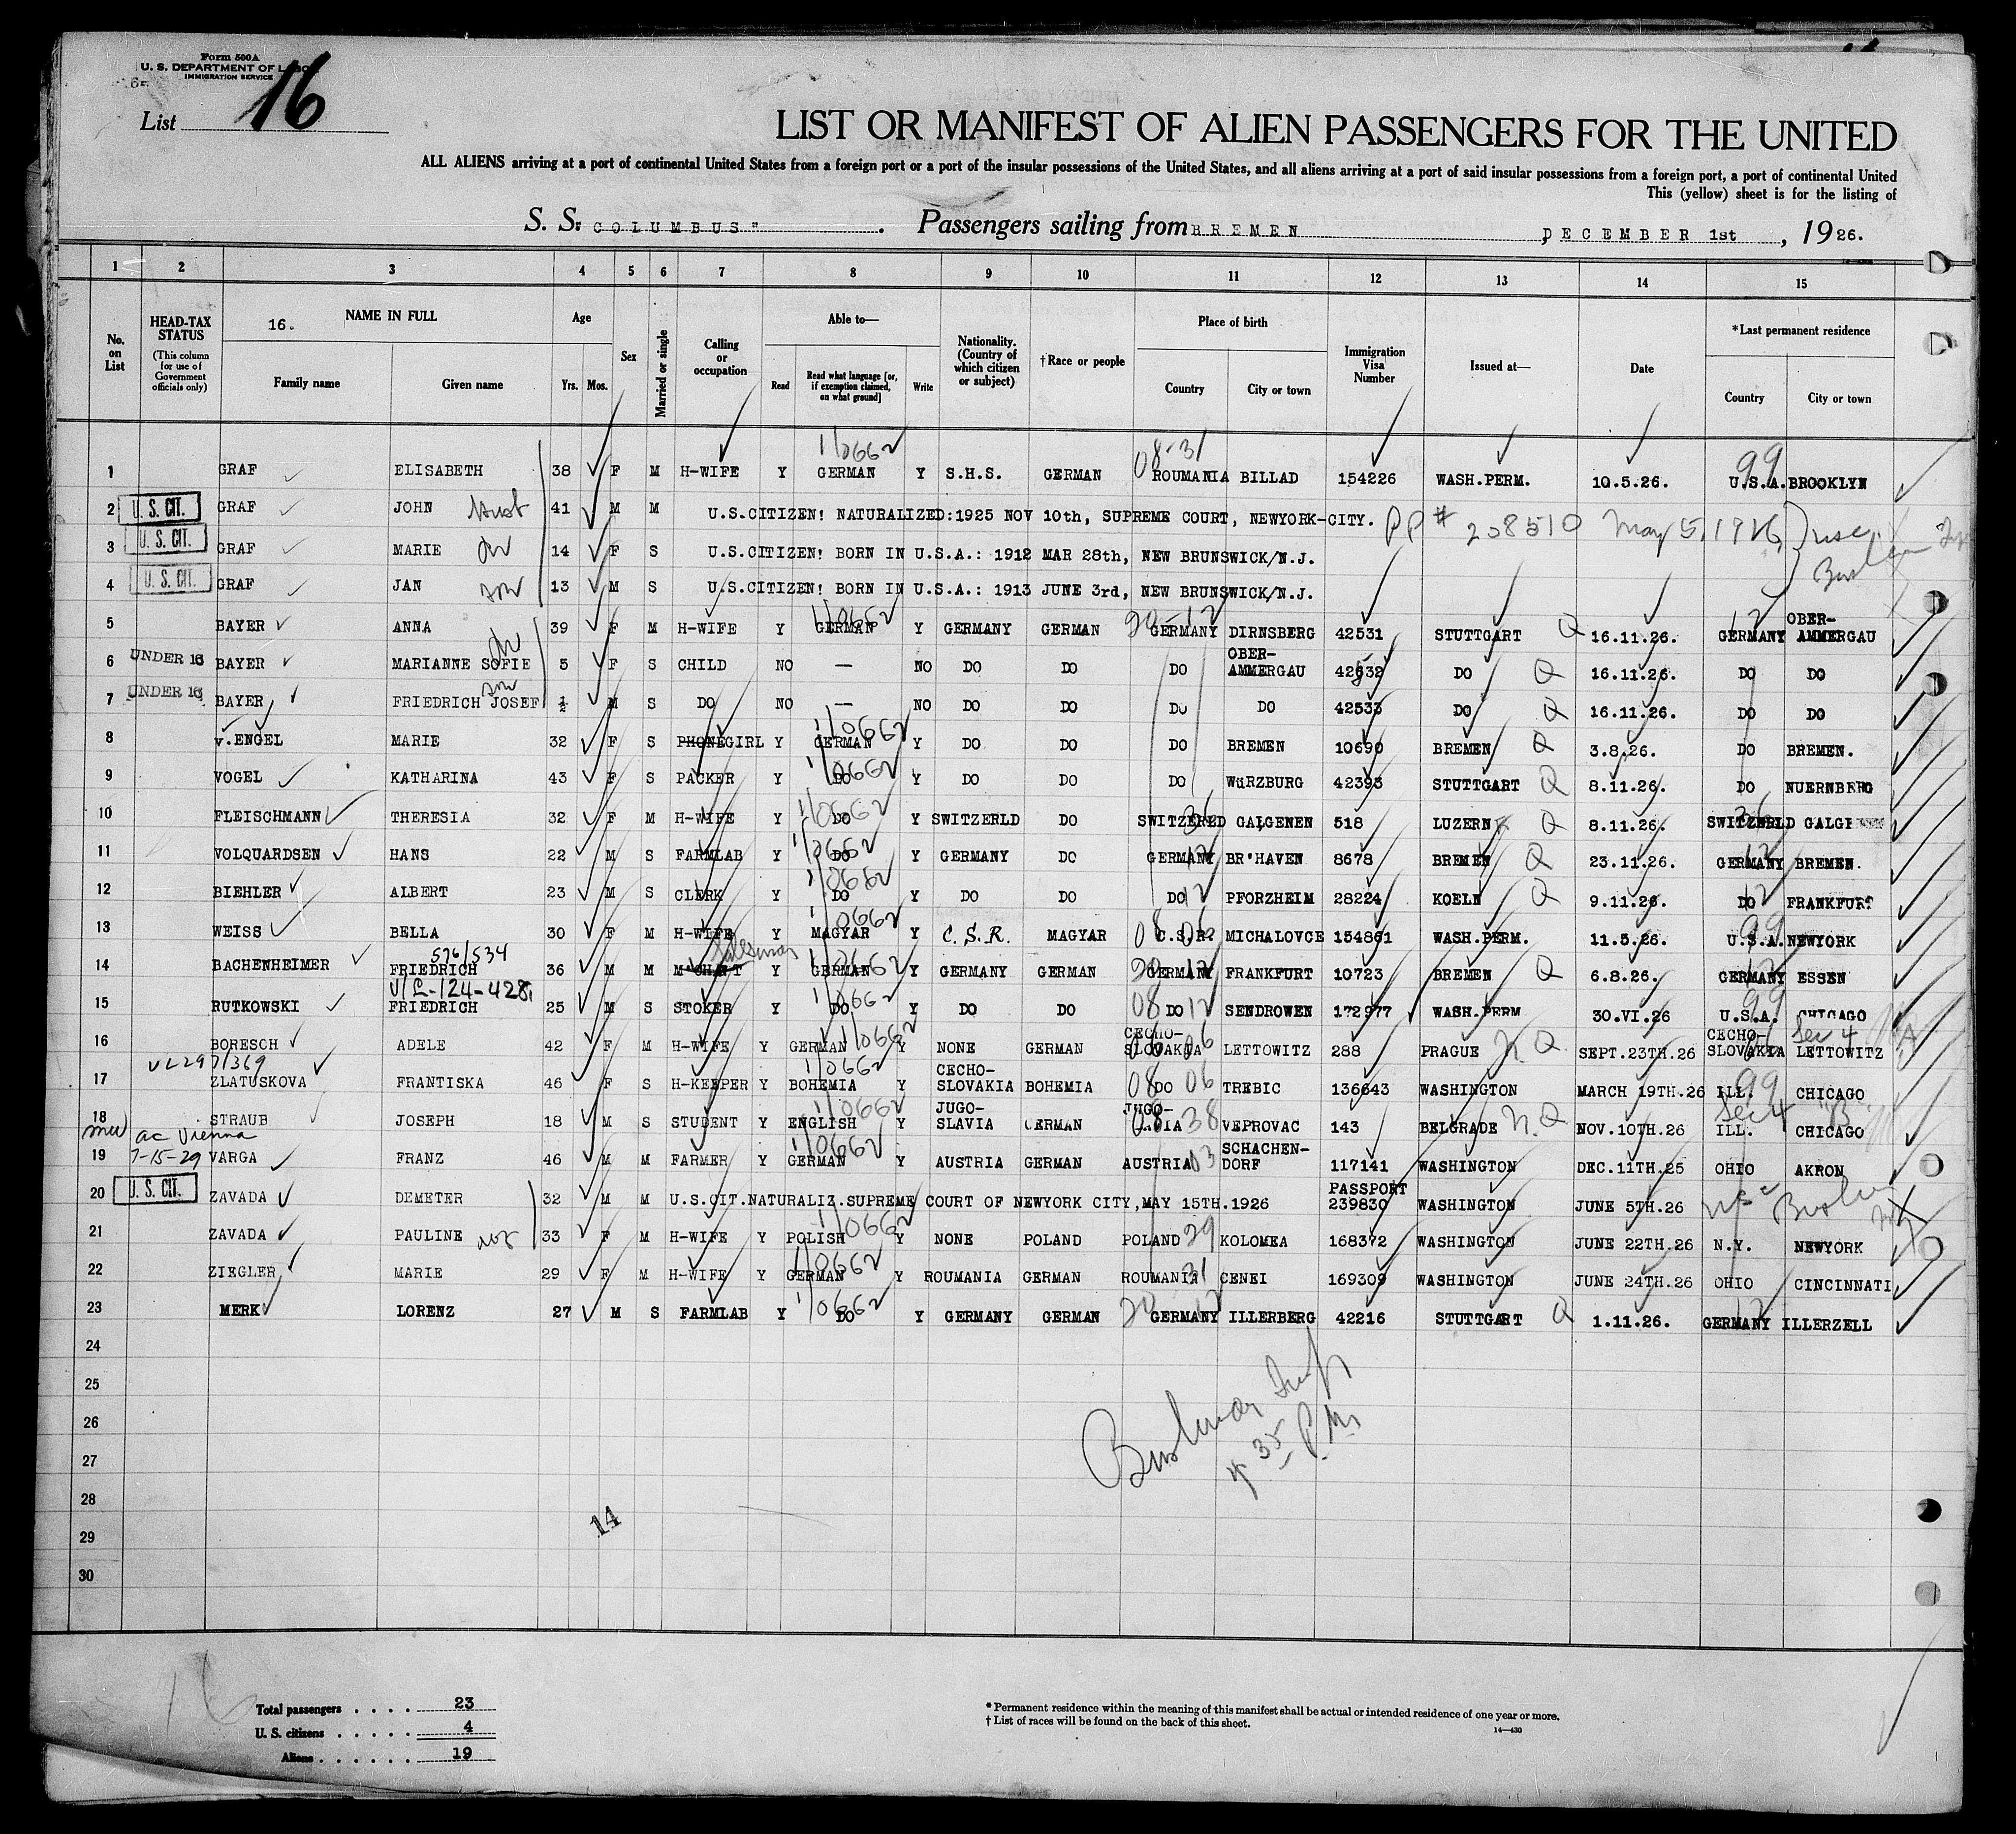 Form 500A
U. S. DEPARTMENT OF LABOR
IMMIGRATION SERVICE
List 16
LIST OR MANIFEST OF ALIEN PASSENGERS FOR THE UNITED
ALL ALIENS arriving at a port of continental United States from a foreign port or a port of the insular possessions of the United States, and all aliens arriving at a port of said insular possessions from a foreign port, a port of continental United
This (yellow) sheet is for the listing of
S. S. "COLUMBUS" . Passengers sailing from BREMEN , DECEMBER 1st , 1926.
1 2 3 4 5 6 7 8 9 10 11 12 13 14 15
No. on List
HEAD-TAX STATUS
(This column for use of Government officials only)
16. NAME IN FULL
Family name Given name
Age
Yrs. Mos.
Sex
Married or single
Calling or occupation
Able to—
Read
Read what language [or, if exemption claimed, on what ground]
Write
Nationality. (Country of which citizen or subject)
†Race or people
Place of birth
Country City or town
Immigration Visa Number
Issued at—
Date
*Last permanent residence
Country City or town
1/0662 08-31 99
1 GRAF ELISABETH 38 F M H-WIFE Y GERMAN Y S.H.S. GERMAN ROUMANIA BILLAD 154226 WASH.PERM. 10.5.26. U.S.A. BROOKLYN
2 U. S. CIT. GRAF JOHN 41 M M U.S.CITIZEN! NATURALIZED:1925 NOV 10th, SUPREME COURT, NEWYORK-CITY. PP # 238510 May 5, 1926
3 U. S. CIT. GRAF MARIE 14 F S U.S.CITIZEN! BORN IN U.S.A.: 1912 MAR 28th, NEW BRUNSWICK/N.J.
4 U. S. CIT. GRAF JAN son 13 M S U.S.CITIZEN! BORN IN U.S.A.: 1913 JUNE 3rd, NEW BRUNSWICK/N.J.
5 BAYER ANNA 39 F M H-WIFE Y GERMAN Y GERMANY GERMAN GERMANY DIRNSBERG 42531 STUTTGART Q 16.11.26. GERMANY OBER-AMMERGAU
6 UNDER 16 BAYER MARIANNE SOFIE 5 F S CHILD NO — NO DO DO DO OBER-AMMERGAU 42532 DO Q 16.11.26. DO DO
7 UNDER 16 BAYER FRIEDRICH JOSEF son ½ M S DO NO — NO DO DO DO DO 42533 DO Q 16.11.26. DO DO
8 v.ENGEL MARIE 32 F S PHONEGIRL Y GERMAN Y DO DO DO BREMEN 10690 BREMEN Q 3.8.26. DO BREMEN.
9 VOGEL KATHARINA 43 F S PACKER Y DO Y DO DO DO WüRZBURG 42393 STUTTGART Q 8.11.26. DO NUERNBERG
10 FLEISCHMANN THERESIA 32 F M H-WIFE Y DO Y SWITZERLD DO SWITZERLD GALGENEN 518 LUZERN Q 8.11.26. SWITZERLD
11 VOLQUARDSEN HANS 22 M S FARMLAB Y DO Y GERMANY DO GERMANY BR'HAVEN 8678 BREMEN Q 23.11.26. GERMANY BREMEN.
12 BIEHLER ALBERT 23 M S CLERK Y DO Y DO DO DO PFORZHEIM 28224 KOELN Q 9.11.26. DO FRANKFURT
13 WEISS BELLA 30 F M H-WIFE Y MAGYAR Y C.S.R. MAGYAR C.S.R. MICHALOVCE 154861 WASH.PERM. 11.5.26. U.S.A. NEWYORK
576/534 Salesman
14 BACHENHEIMER FRIEDRICH 36 M M M'CHANT Y GERMAN Y GERMANY GERMAN GERMANY FRANKFURT 10723 BREMEN Q 6.8.26. GERMANY ESSEN
V/L-124-428
15 RUTKOWSKI FRIEDRICH 25 M S STOKER Y DO Y DO DO DO SENDROWEN 172977 WASH.PERM 30.VI.26 U.S.A. CHICAGO
16 BORESCH ADELE 42 F M H-WIFE Y GERMAN Y NONE GERMAN CECHO-SLOVAKIA LETTOWITZ 288 PRAGUE N.Q. SEPT.23TH.26 CECHO-SLOVAKIA LETTOWITZ Sec 4
VL297/369
17 ZLATUSKOVA FRANTISKA 46 F S H-KEEPER Y BOHEMIA Y CECHO-SLOVAKIA BOHEMIA DO TREBIC 136643 WASHINGTON MARCH 19TH.26 ILL. CHICAGO
18 STRAUB JOSEPH 18 M S STUDENT Y ENGLISH Y JUGO-SLAVIA GERMAN JUGO-SLAVIA VEPROVAC 143 BELGRADE N.Q. NOV.10TH.26 ILL. CHICAGO Sec 4
ac Vienna
7-15-29
19 VARGA FRANZ 46 M M FARMER Y GERMAN Y AUSTRIA GERMAN AUSTRIA SCHACHEN-DORF 117141 WASHINGTON DEC.11TH.25 OHIO AKRON
20 U. S. CIT. ZAVADA DEMETER 32 M M U.S.CIT.NATURALIZ.SUPREME COURT OF NEWYORK CITY,MAY 15TH.1926 PASSPORT 239830 WASHINGTON JUNE 5TH.26
21 ZAVADA PAULINE 33 F M H-WIFE Y POLISH Y NONE POLAND POLAND KOLOMEA 168372 WASHINGTON JUNE 22TH.26 N.Y. NEWYORK
22 ZIEGLER MARIE 29 F M H-WIFE Y GERMAN Y ROUMANIA GERMAN ROUMANIA CENEI 169309 WASHINGTON JUNE 24TH.26 OHIO CINCINNATI
23 MERK LORENZ 27 M S FARMLAB Y DO Y GERMANY GERMAN GERMANY ILLERBERG 42216 STUTTGART Q 1.11.26. GERMANY ILLERZELL
24
25
26
27
28
29
30
4 35 P.M.
14
16
Total passengers . . . . 23
U. S. citizens . . . . . 4
Aliens . . . . . . 19
* Permanent residence within the meaning of this manifest shall be actual or intended residence of one year or more.
† List of races will be found on the back of this sheet.
14—430